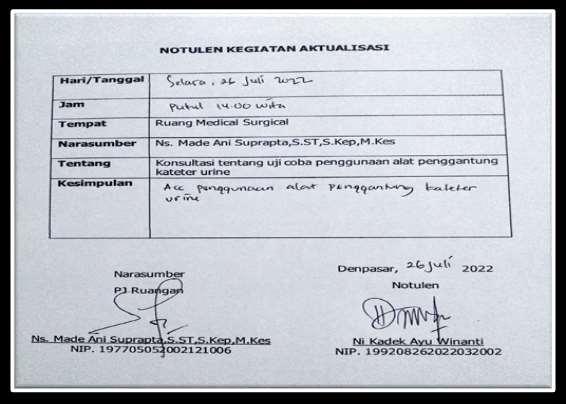 NOTULEN KEGIATAN AKTUALISASI
Hari/Tanggal Selasa, 26 Juli 2022
Jam Pukul 14.00 wita
Tempat Ruang Medical Surgical
Narasumber Ns. Made Ani Suprapta,S.ST,S.Kep,M.Kes
Tentang Konsultasi tentang uji coba penggunaan alat penggantung
kateter urine
Kesimpulan Acc penggunaan alat penggantung kateter
urine
Denpasar, 26 Juli 2022
Narasumber Notulen
PJ Ruangan
Ns. Made Ani Suprapta,S.ST,S.Kep,M.Kes Ni Kadek Ayu Winanti
NIP. 197705052002121006 NIP. 199208262022032002